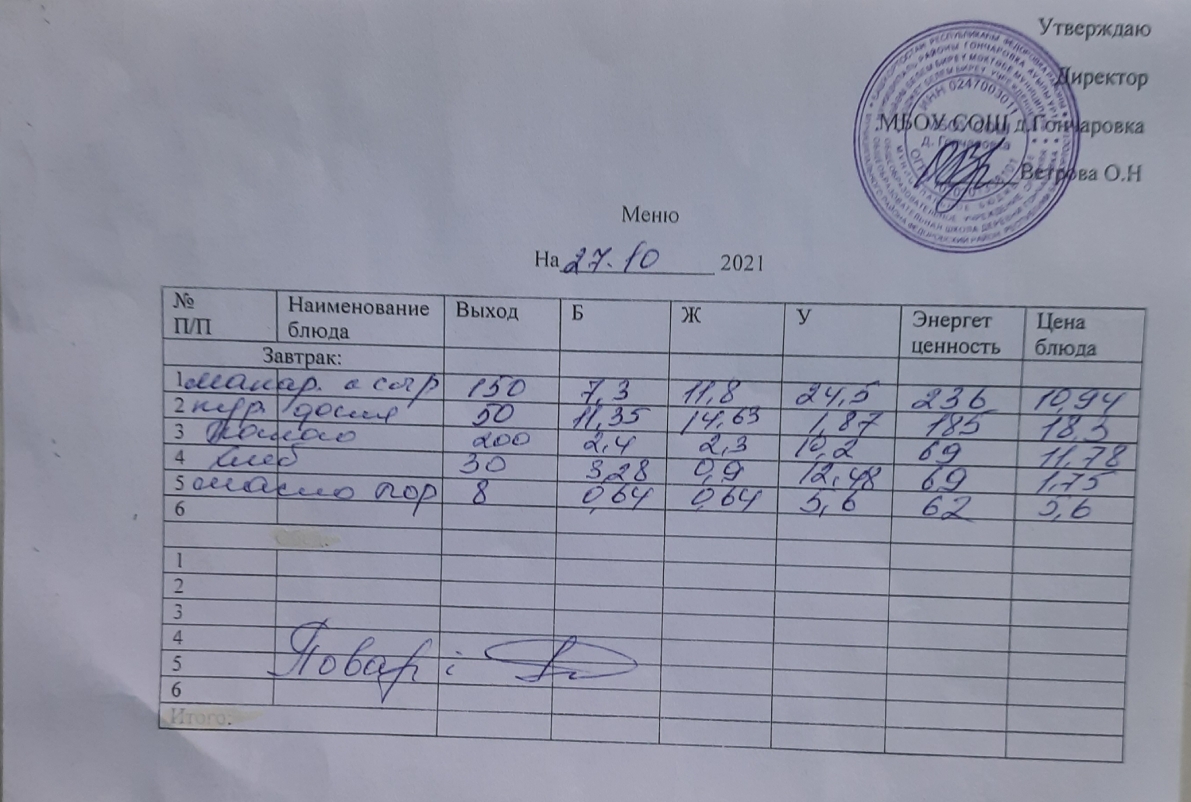 Утверждаю
Директор
МБОУ СОШ д.Гончаровка
Ветрова О.Н
ИНН 0247003011
д. Гончаровка
Меню
На 27.10 2021
№ П/П Наименование блюда Выход Б Ж У Энергет ценность Цена блюда
Завтрак:
1 макар. с сыр 150 7,3 11,8 24,5 236 10,94
2 кур. 50 11,35 14,63 1,87 185 18,5
3 200 2,4 2,3 10,2 69 11,78
4 хлеб 30 3,28 0,9 12,48 69 1,75
5 масло пор 8 0,64 0,64 5,6 62 5,6
6
1
2
3
4
5
6
Повар:
Итого: